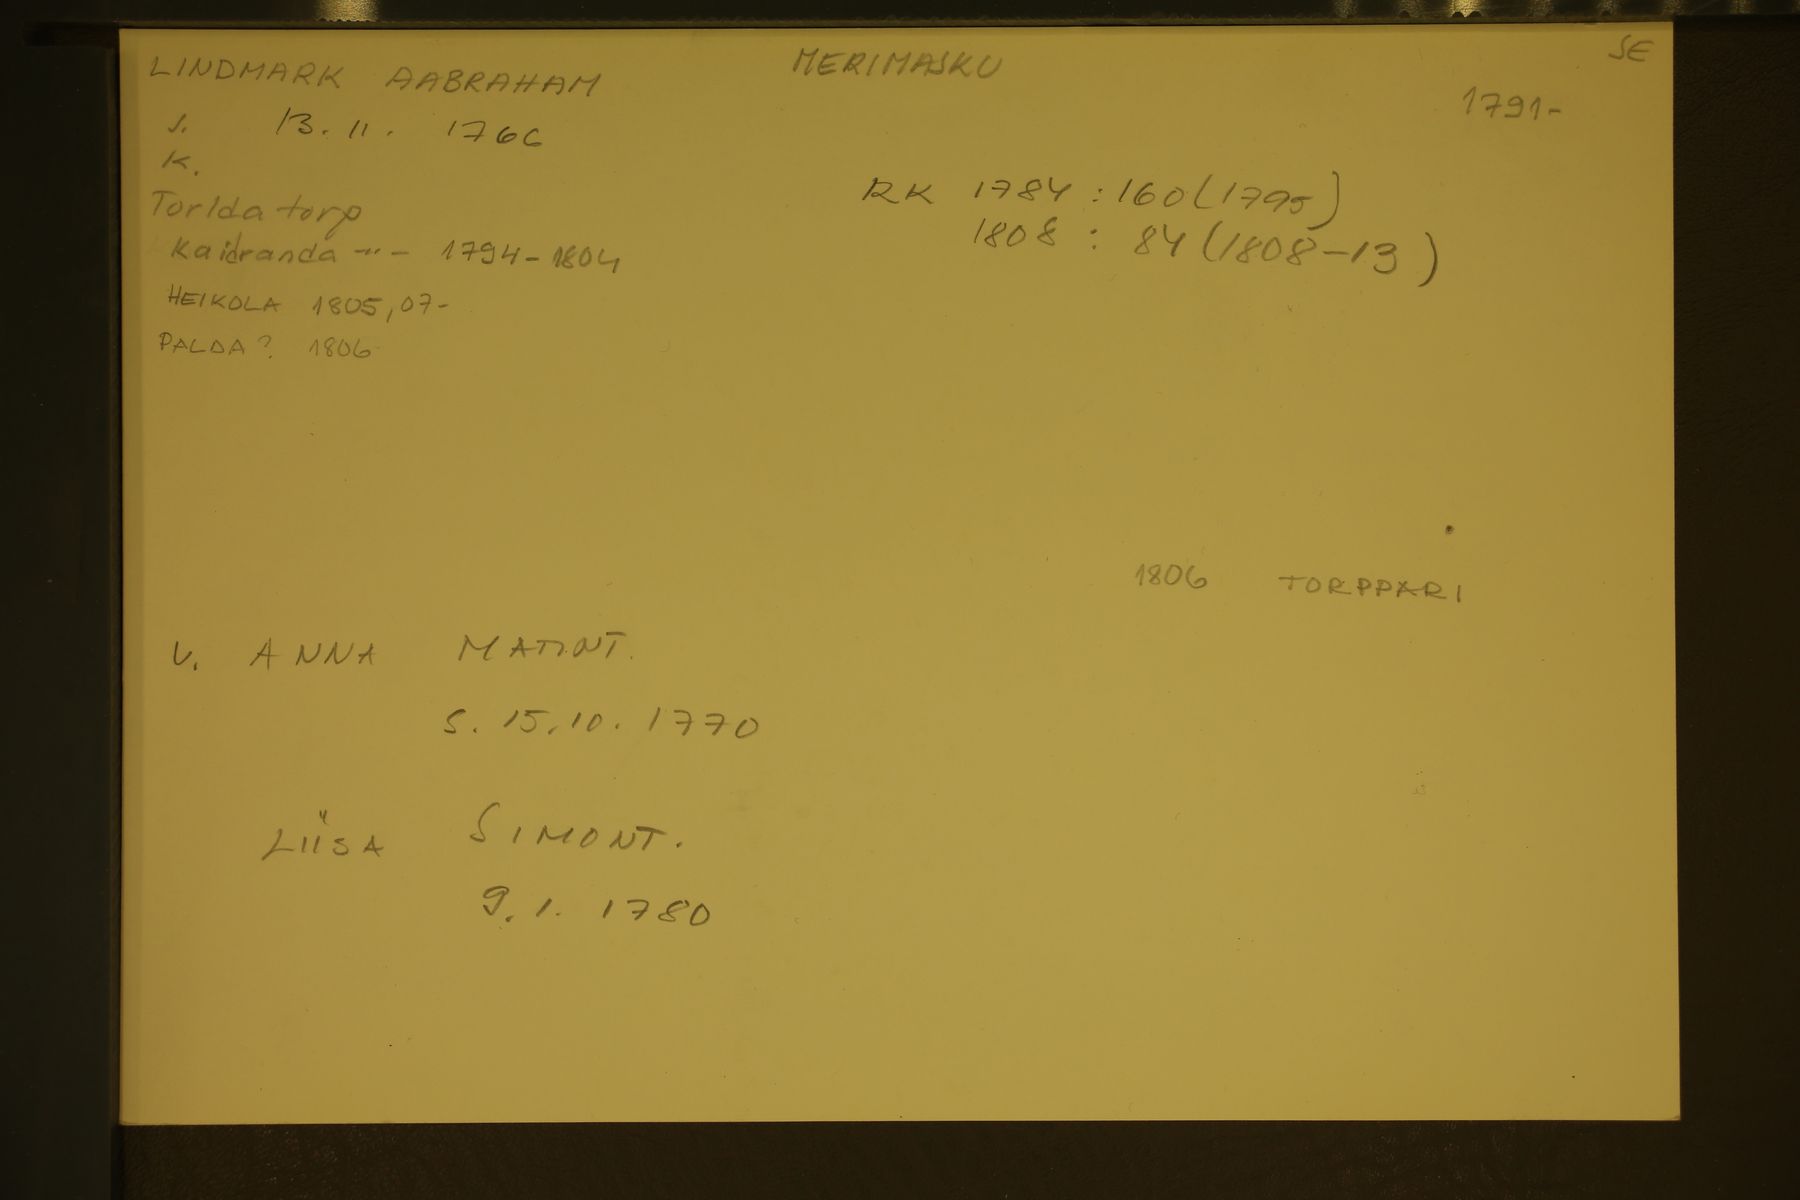 LINDMARK AABRAHAM
MERIMASKU
SE
1791-
s. 13.11. 1766
K.
RK 1784 : 160 (1795)
1808 : 84 (1808-13)
Torlda torp
Kaidranda -"- 1794-1804
HEIKOLA 1805, 07-
PALDA? 1806
1806 TORPPARI
V. ANNA MATINT.
S. 15.10. 1770
LIISA SIMONT.
9.1. 1780